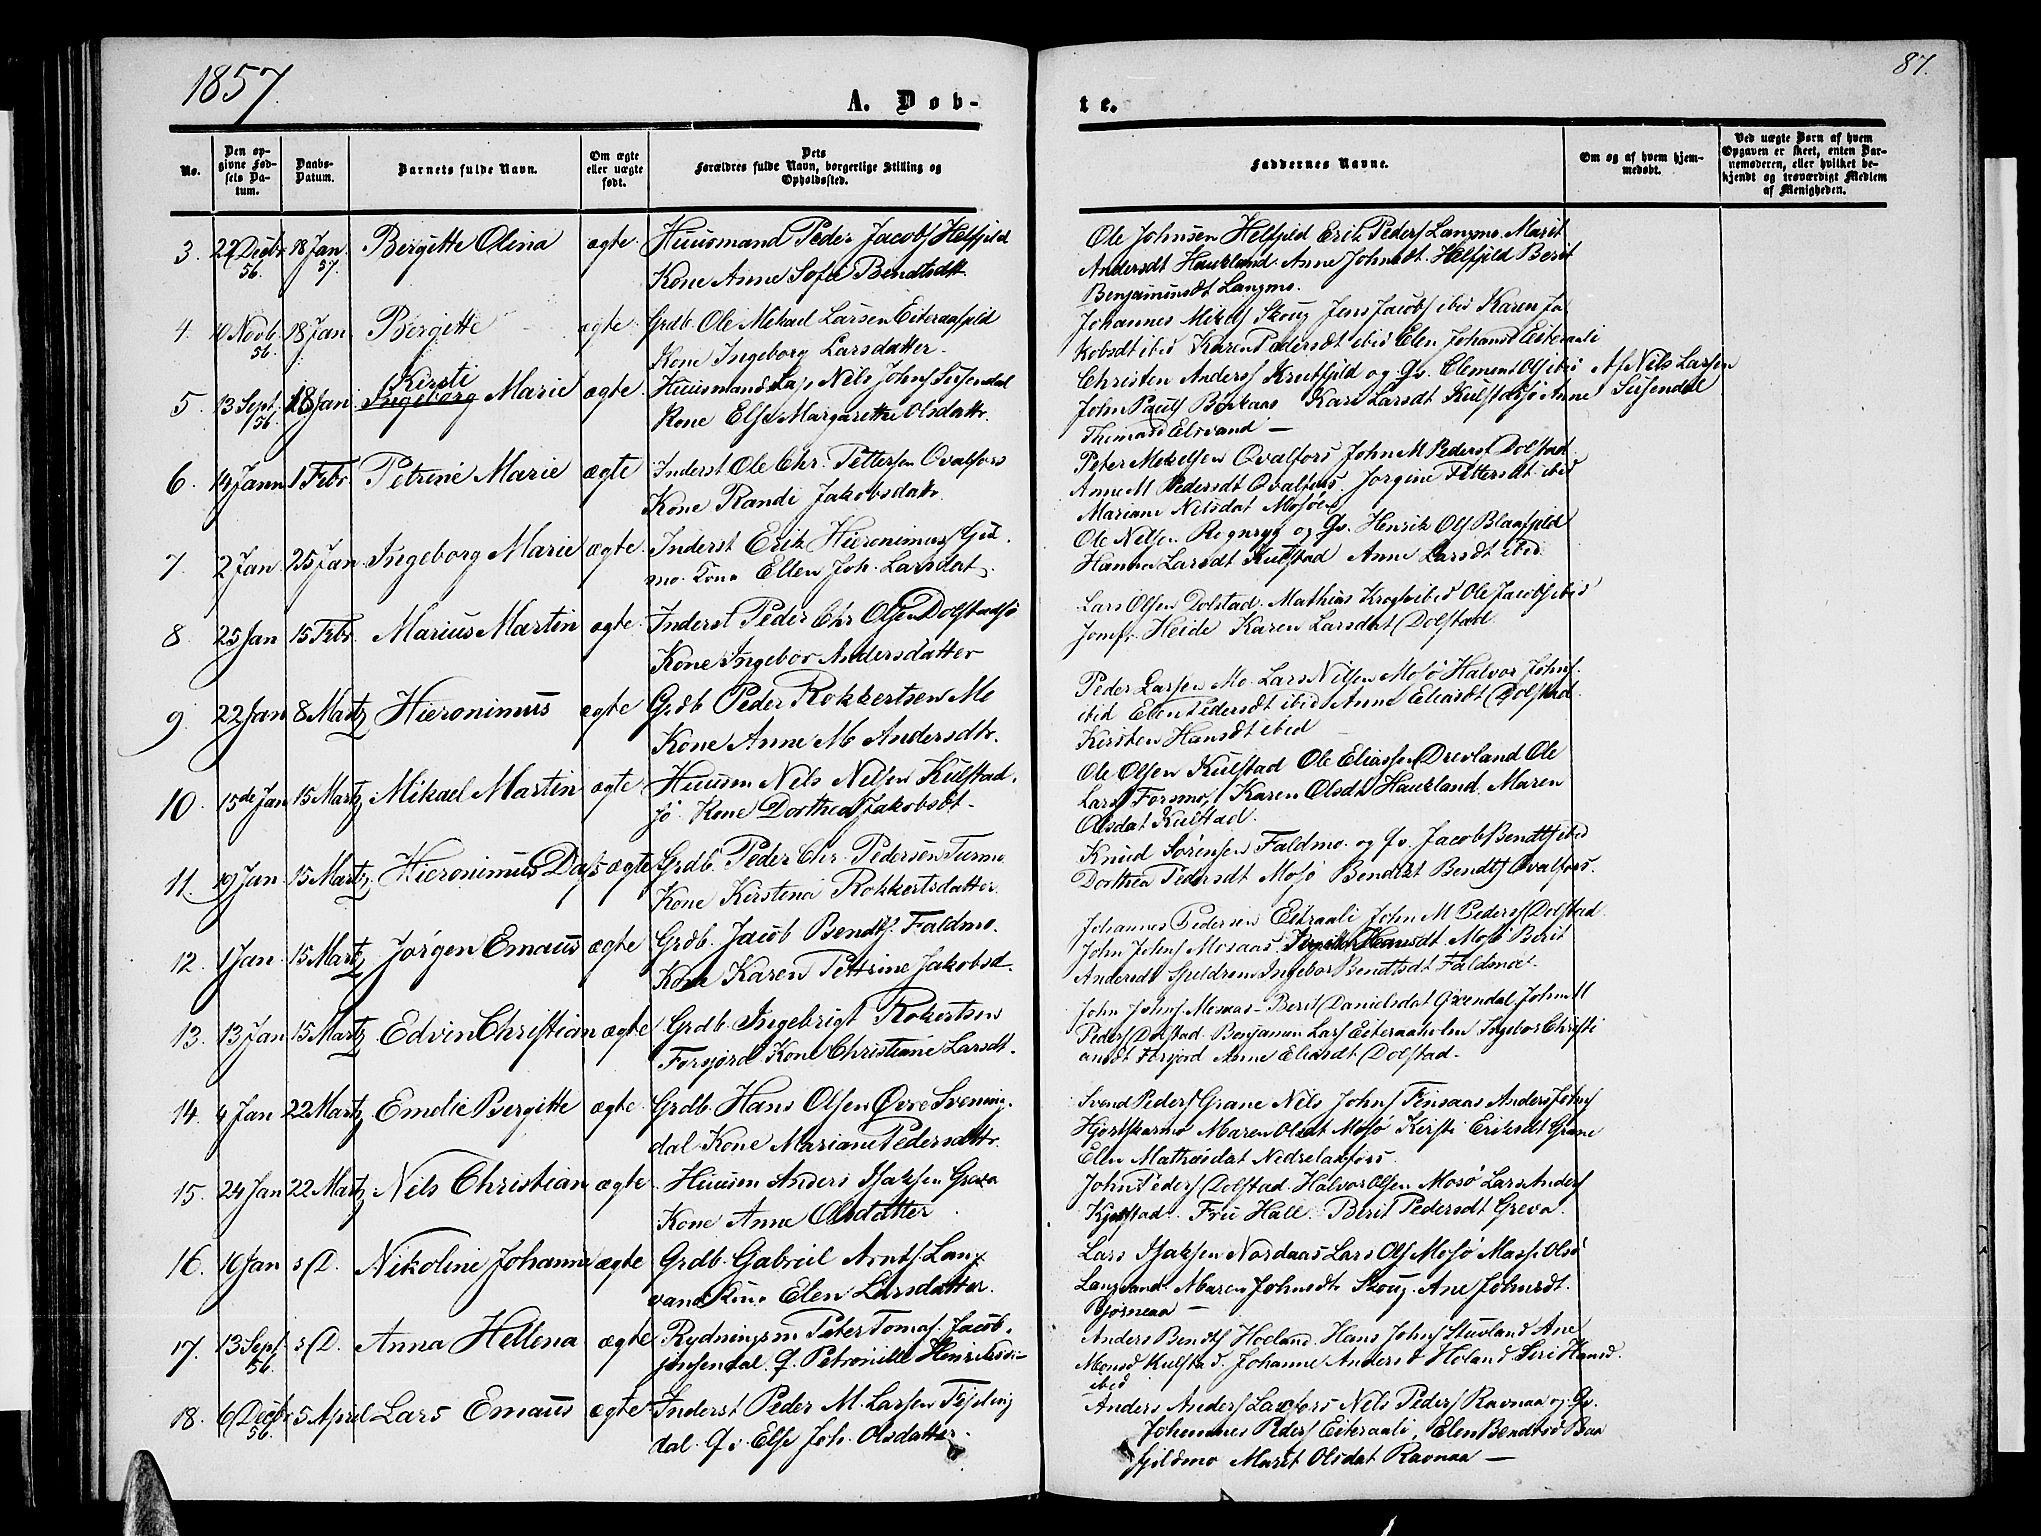 1857.
87.
A. Døb-
te.
No.
Den op-
givne Fød-
sels Da-
tum.
Daabs-
Datum.
Barnets fulde Navn.
Om ægte
eller uægte
født.
Dets
Forældres fulde Navn, borgerlige Stilling og
Opholdssted.
Faddernes Navne.
Om og af hvem hjem-
medøbt.
Ved uægte Børn af hvem
Opgaven er skeet, enten Bar-
nemoderen, eller hvilket be-
kjendt og troværdigt Medlem
af Menigheden.
3. 22 Decbr 56. 18 Jan 57. Bergitte Olina ægte Huusmand Peder Jacobs Helfjeld
Kone Anne Sofie Bendtsdtr.
Ole Johnsen Helfjeld Erik Peders Langmo. Marit
Andersdt Haukland. Anne Johnsdt. Helfjeld Berit
Benjaminsdt Langmo.
4. 10 Novb 56. 18 Jan Bergitte ægte. Grdb. Ole Mikael Larsen Eiteraafjeld
Kone Ingeborg Larsdatter.
Johannes Mikels Skoug Jens Jacobs ibid Karen Ja
kobsdt ibid Karen Pedersdt ibid Elen Johansd Eiteraali
5. 13 Sept 56. 18 Jan Kirsti
Ingeborg Marie ægte. Huusmand Nils Johns Susendal
Kone Else Margarethe Olsdattr.
Christen Anders Krutfjeld og Qv. Clement Ols ibid
John Pauls Kari Larsdt Kulstadsjø Anne
Thomasd Elsvand —
Af Nils Larsen
Susendal
6. 14 Jann 1 Febr Petrine Marie ægte Inderst Ole Chr. Pettersen Qvalfors
Kone Randi Jakobsdatr.
Peter Mekelsen Qvalfors John M Peders Dolstad
Anne M Pedersdt Qvalfors. Jorgine Pettersdt ibid
Mariane Nilsdat Mosøen
7. 2 Jan. 25 Jan Ingeborg Marie ægte. Inderst Erik Hieronimus
mo. Kone Ellen Joh. Larsdat.
Ole Nilsen og Qv. Henrik Ols Blaafjeld
Hanna Larsdt Kulstad Anne Larsdt ibid
8 25 Jan 15 Febr. Marius Martin ægte. Inderst Peder Chr Olsen Dolstadsjø
Kone Ingebor Andersdatter
Lars Olsen Dolstad. Mathias Krogh ibid Ole Jacobs ibid
Jomfr. Heide Karen Larsdat Dolstad
9 22 Jan 8 Martz Hieronimus ægte Grdb Peder Rokkertsen Mo
Kone Anne M Andersdtr.
Peder Larsen Mo. Lars Nilsen Mosø Halvor Johns.
ibid Elen Pedersdt ibid Anne Eliasdt Dolstad
Kirsten Hansdt ibid
10. 15de Jan 15 Martz Mikael Martin ægte Huusm Nils Nilsen Kulstad.
sjø. Kone Dorthea Jakobsdt.
Ole Olsen Kulstad Ole Eliassen Drevland Ole
Lars Forsmo, Karen Olsdt Haukland. Maren
Olsdat Kulstad.
11. 19 Jan. 15 Martz. Hieronimus Das ægte Grdb. Peder Chr. Pedersen Turmo
Kone Kirstina Rokkertsdatter.
Knud Sørensen Faldmo. og Qv. Jacob Bendts ibid
Dorthea Pedersdt Mosjø Bendikt Bendts Qvalfors.
12. 1 Jan. 15 Martz Jørgen Emaus ægte Grdb. Jacob Bendts. Faldmo.
Kone Karen Pettrine Jakobsd.
Johannes Pedersen Eiteraali John M Peders Dolstad.
John Johns Mosaas. Hansdt Mosø Berit
Andersdt Ingebor Bendtsdt Faldmo.
13. 13 Jan 15 Martz Edvin Christian ægte Grdb. Ingebrigt Rokertsen
Forsjord Kone Christiane Larsdt.
John Johns. Mosaas – Berit Danielsdat Grendal John M
Peders Dolstad. Benjamin Lars Eiteraaholm Ingebor Christi
ansdt Forsjord Anne Eliasdt Dolstad.
14. 4 Jan 22 Martz Emelie Bergitte ægte. Grdb. Hans Olsen Øvre Svening-
dal Kone Mariane Pedersdattr.
Svend Peders Grane Nils Johns Finsaas Anders Johns
Hjortskarmo Maren Olsdt Mosjø Kirsti Eriksdt Grane
Elen Mathisdat Nedrelaxfors.
15. 24 Jan 22 Martz Nils Christian ægte. Huusm Anders Isaksen Greva
Kone Anne Olsdatter.
John Peders Dolstad. Halvor Olsen Mosø Lars Anders
Fru Hall. Berit Pedersdt Greva.
16. 10 Jan s. D. Nikoline Johanne ægte Grdb. Gabriel Arnts. Lang
vand Kone Elen Larsdatter.
Lars Isaksen Nordaas Lars Ols Mosjø Olsd
Langvand. Maren Johnsdt Skoug. Ane Johnsdt.
Bjørneaa —
17. 13 Sept 56. s. D. Anna Hellena ægte Rydningsm Peter Tomas. Jacob.
Susendal. Q. Petronille Henriksd. —
Anders Bendts Høland. Hans Johns Stuvland Ane
Monsd Kulstad. Johanne Andersd Høland. Siri Hansd.
ibid
18. 6 Decbr 56. 5 April Lars Emaus ægte Inderst Peder M. Larsen Fisling
dal. Qv. Else Joh. Olsdatter.
Anders Anders Laxfors Nils Peders Ravnaa og Qv.
Johannes Peders Eiteraali, Elen Bendtsd Baa
fjeldmo Marit Olsdat Ravnaa —